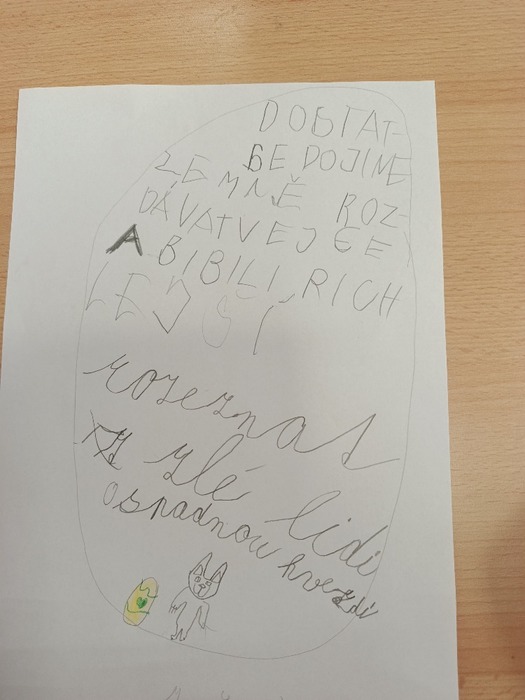 DOSTAT-
SE DO JINE
ZEMNĚ ROZ-
DÁVAT VEJCE
A BIBILI RICH
LEJŠÍ
rozeznat
zlé lidi
ospadnou hvezdi